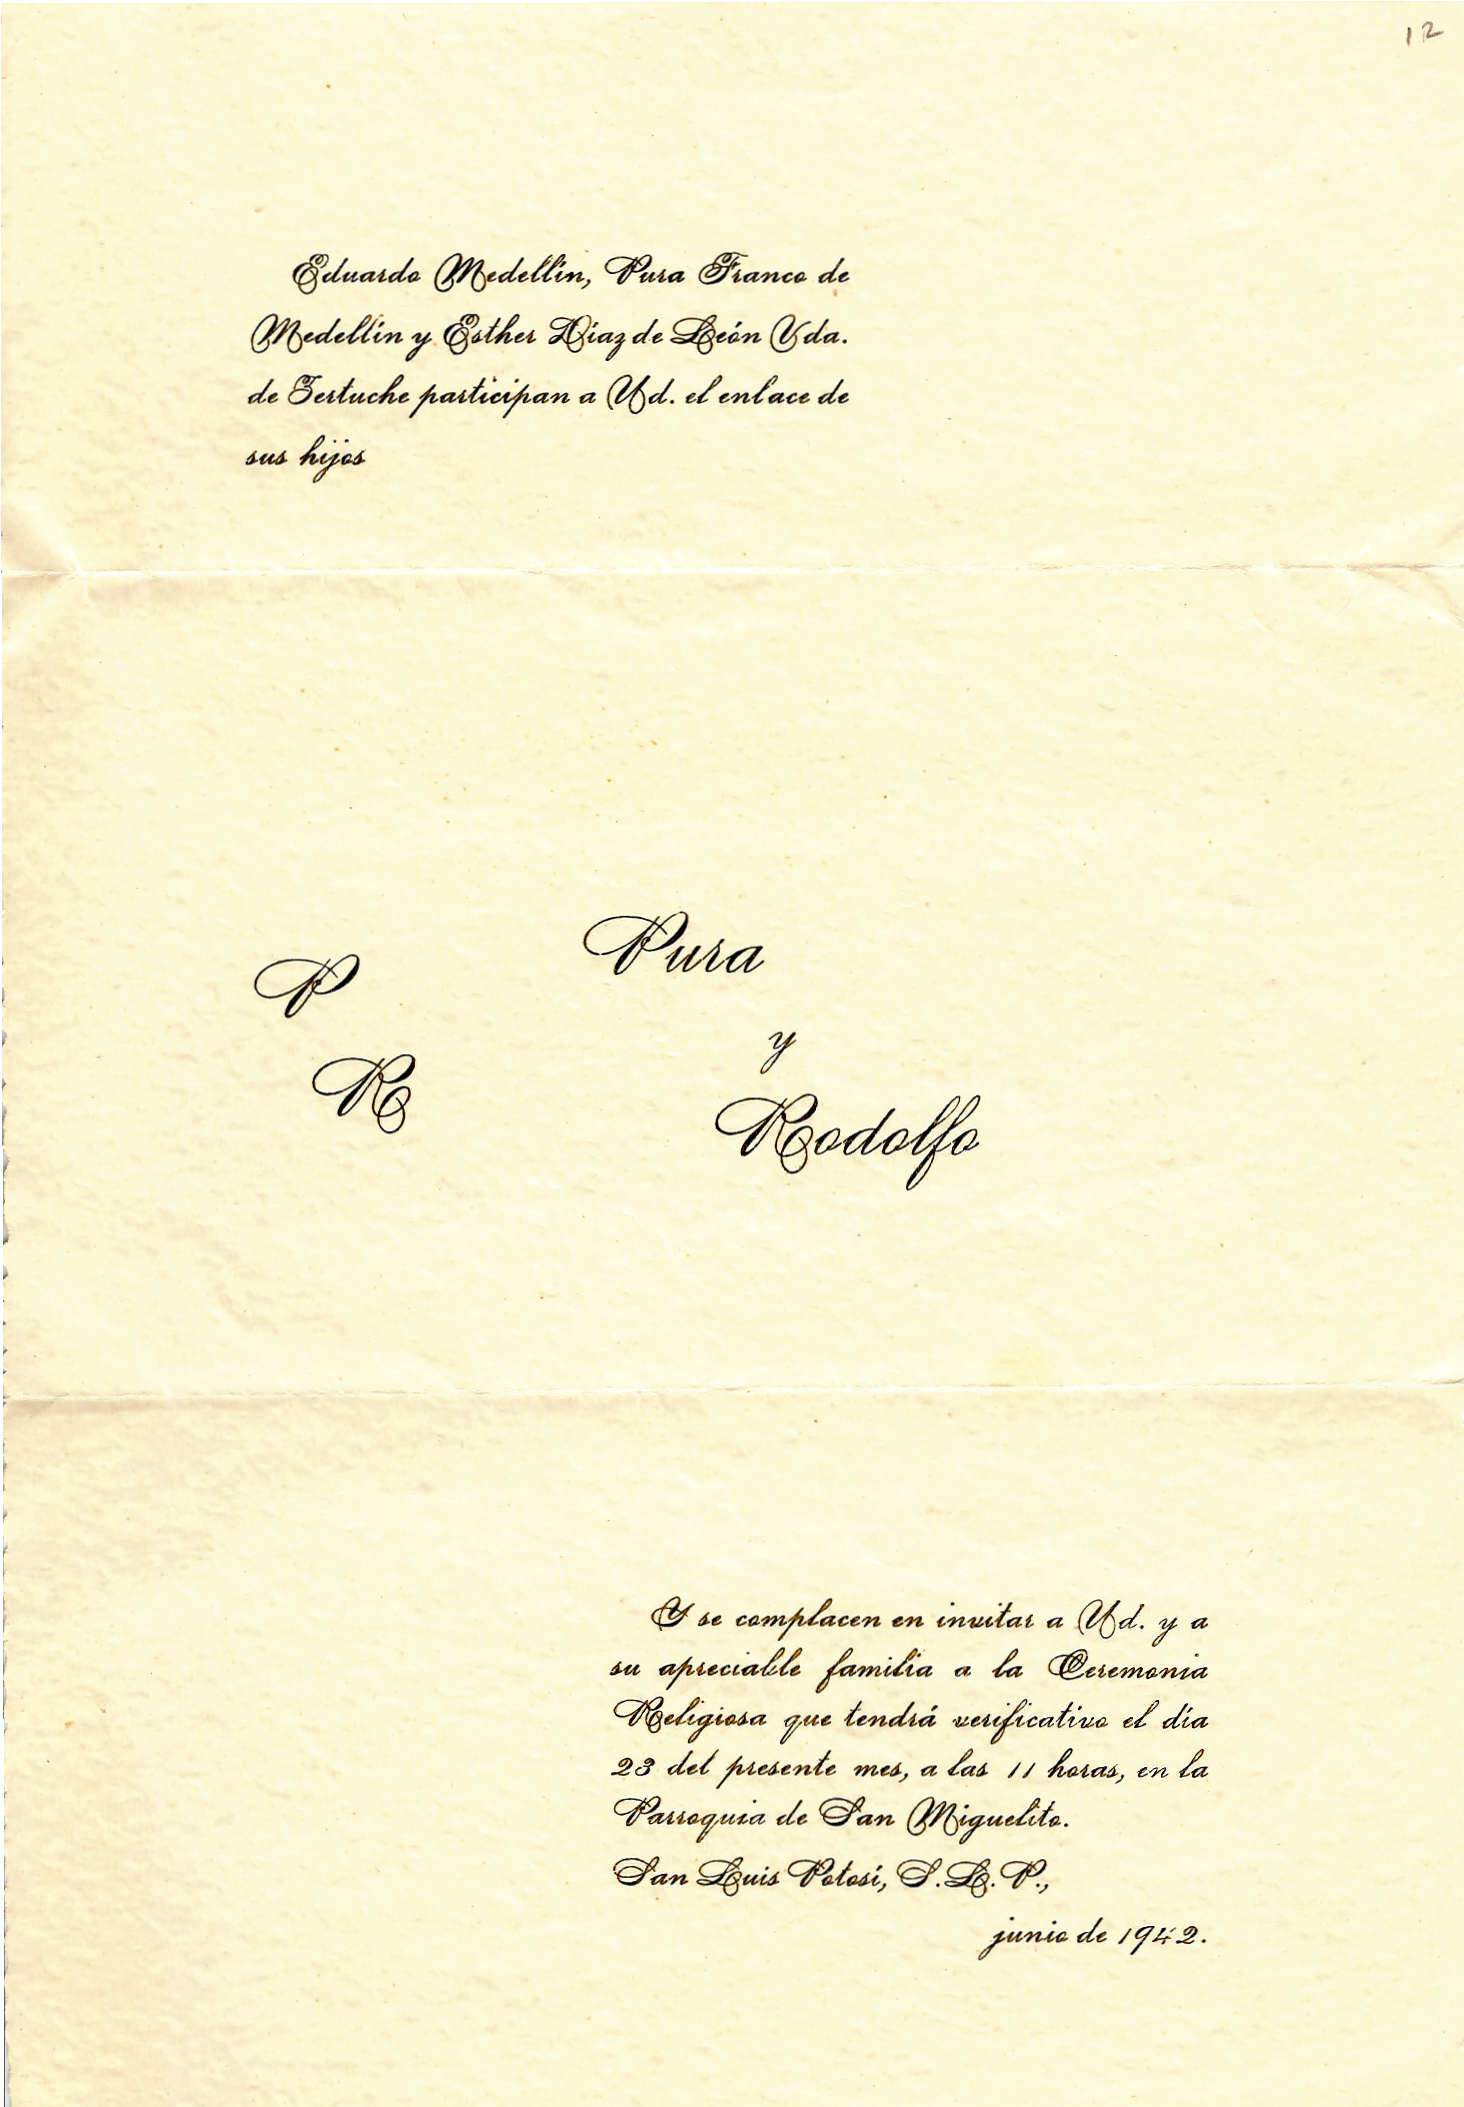 12
Eduardo Medellín, Pura Franco de
Medellín y Esther Díaz de León Vda.
de Tertuche participan a Ud. el enlace de
sus hijos
P
R
Pura
y
Rodolfo
Y se complacen en invitar a Ud. y a
su apreciable familia a la Ceremonia
Religiosa que tendrá verificativo el día
23 del presente mes, a las 11 horas, en la
Parroquia de San Miguelito.
San Luis Potosí, S. L. P.,
junio de 1942.